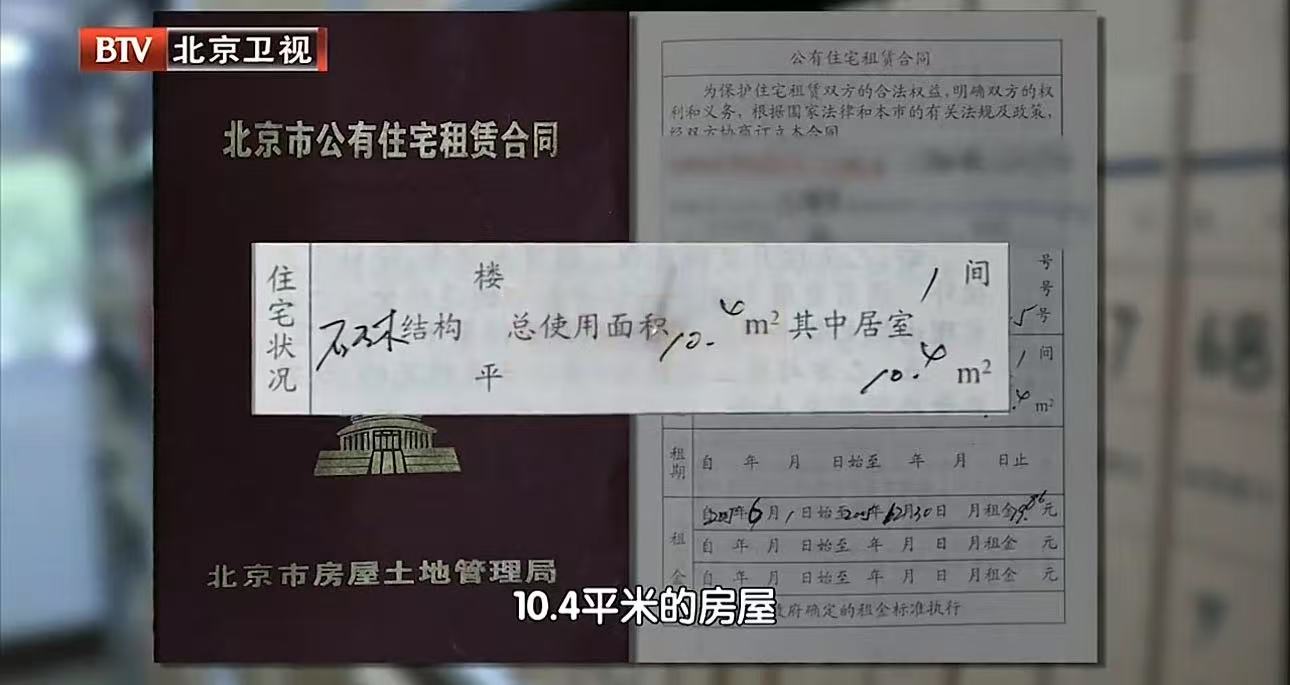 BTV 北京卫视
北京市公有住宅租赁合同
北京市房屋土地管理局
公有住宅租赁合同
为保护住宅租赁双方的合法权益,明确双方的权
利和义务,根据国家法律和本市的有关法规及政策,
经双方协商订立本合同
号
号
5号
1 间
.4 m²
住宅状况
楼
1 间
结构 总使用面积10.4 m² 其中居室
平
10.4 m²
租期
自 年 月 日始至 年 月 日止
租金
6月1日始至 月30日 月租金 元
自 年 月 日始至 年 月 日 月租金 元
自 年 月 日始至 年 月 日 月租金 元
府确定的租金标准执行
10.4平米的房屋